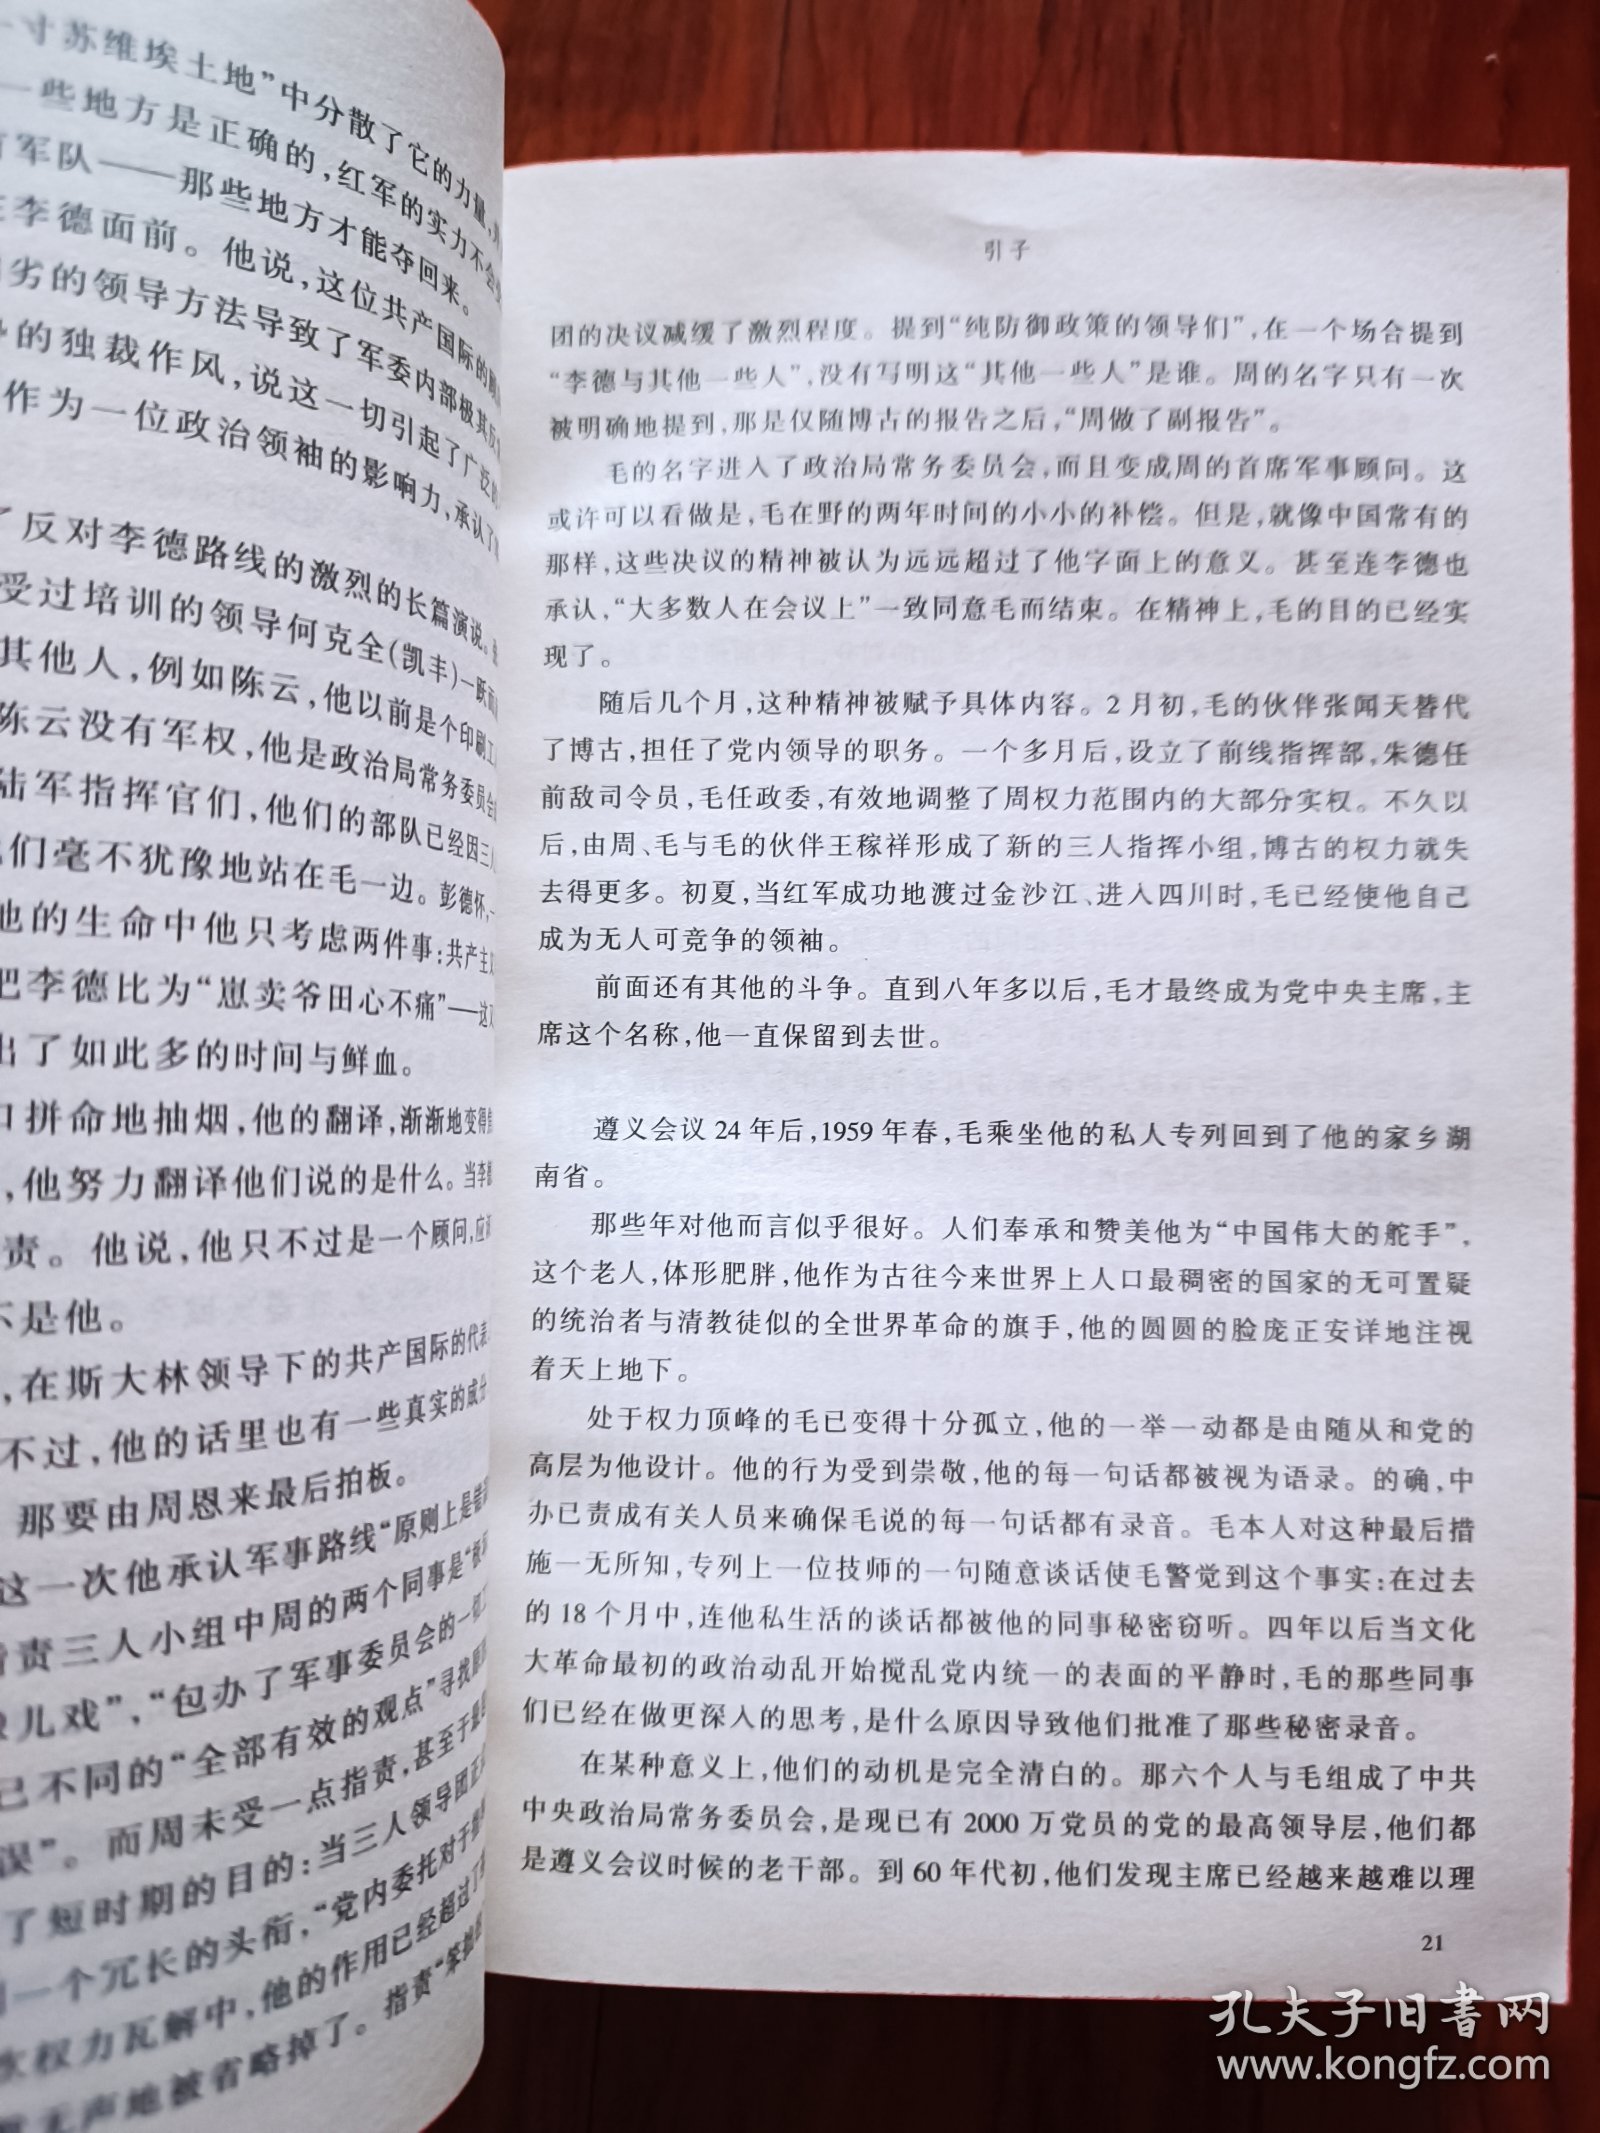 一寸苏维埃土地”中分散了它的力量,
一些地方是正确的,红军的实力不会
军队——那些地方才能夺回来。
李德面前。他说,这位共产国际的顾
劣的领导方法导致了军委内部极其反
的独裁作风,说这一切引起了广泛的
作为一位政治领袖的影响力,承认了
了反对李德路线的激烈的长篇演说。
受过培训的领导何克全(凯丰)一跃而
其他人,例如陈云,他以前是个印刷工
陈云没有军权,他是政治局常务委员会
陆军指挥官们,他们的部队已经因三人
们毫不犹豫地站在毛一边。彭德怀,一
他的生命中他只考虑两件事:共产主义
把李德比为“崽卖爷田心不痛”——这
出了如此多的时间与鲜血。
口拼命地抽烟,他的翻译,渐渐地变得
,他努力翻译他们说的是什么。当李德
责。他说,他只不过是一个顾问,应
不是他。
,在斯大林领导下的共产国际的代表
不过,他的话里也有一些真实的成分
那要由周恩来最后拍板。
这一次他承认军事路线“原则上是错
指责三人小组中周的两个同事是“极
儿戏”,“包办了军事委员会的一切
己不同的“全部有效的观点”寻找
误”。而周未受一点指责,甚至于
了短时期的目的:当三人领导团正
一个冗长的头衔,“党内委托对于
权力瓦解中,他的作用已经超过了
无声地被省略掉了。指责“笨拙
引子
团的决议减缓了激烈程度。提到“纯防御政策的领导们”,在一个场合提到
“李德与其他一些人”,没有写明这“其他一些人”是谁。周的名字只有一次
被明确地提到,那是仅随博古的报告之后,“周做了副报告”。
毛的名字进入了政治局常务委员会,而且变成周的首席军事顾问。这
或许可以看做是,毛在野的两年时间的小小的补偿。但是,就像中国常有的
那样,这些决议的精神被认为远远超过了他字面上的意义。甚至连李德也
承认,“大多数人在会议上”一致同意毛而结束。在精神上,毛的目的已经实
现了。
随后几个月,这种精神被赋予具体内容。2月初,毛的伙伴张闻天替代
了博古,担任了党内领导的职务。一个多月后,设立了前线指挥部,朱德任
前敌司令员,毛任政委,有效地调整了周权力范围内的大部分实权。不久以
后,由周、毛与毛的伙伴王稼祥形成了新的三人指挥小组,博古的权力就失
去得更多。初夏,当红军成功地渡过金沙江、进入四川时,毛已经使他自己
成为无人可竞争的领袖。
前面还有其他的斗争。直到八年多以后,毛才最终成为党中央主席,主
席这个名称,他一直保留到去世。
遵义会议24年后,1959年春,毛乘坐他的私人专列回到了他的家乡湖
南省。
那些年对他而言似乎很好。人们奉承和赞美他为“中国伟大的舵手”,
这个老人,体形肥胖,他作为古往今来世界上人口最稠密的国家的无可置疑
的统治者与清教徒似的全世界革命的旗手,他的圆圆的脸庞正安详地注视
着天上地下。
处于权力顶峰的毛已变得十分孤立,他的一举一动都是由随从和党的
高层为他设计。他的行为受到崇敬,他的每一句话都被视为语录。的确,中
办已责成有关人员来确保毛说的每一句话都有录音。毛本人对这种最后措
施一无所知,专列上一位技师的一句随意谈话使毛警觉到这个事实:在过去
的18个月中,连他私生活的谈话都被他的同事秘密窃听。四年以后当文化
大革命最初的政治动乱开始搅乱党内统一的表面的平静时,毛的那些同事
们已经在做更深入的思考,是什么原因导致他们批准了那些秘密录音。
在某种意义上,他们的动机是完全清白的。那六个人与毛组成了中共
中央政治局常务委员会,是现已有2000万党员的党的最高领导层,他们都
是遵义会议时候的老干部。到60年代初,他们发现主席已经越来越难以理
21
孔夫子旧书网
www.kongfz.com